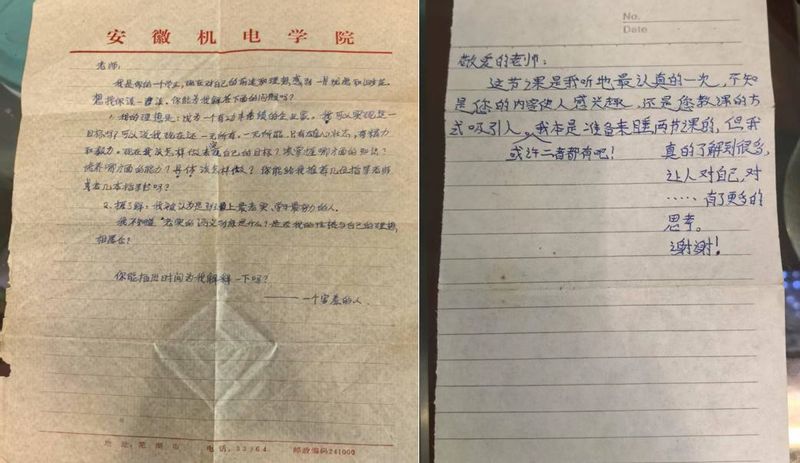 安徽机电学院
老师:
我是你的一个学生,现在对自己的前途和理想感到一片忧虑和
想找你谈一谈,你能为我解答下面的问题吗?
1. 我的理想是:成为一个有功于者绩的企业家,我可以实现这一
目标吗?可以说我现在还一无所有,一无所能,只有雄心壮志,有精力
和毅力。现在我该怎样做去走自己的目标?该掌握哪方面的知识?
培养哪方面的能力?具体该怎样做?你能给我推荐几位指学老师,
或者几本指学书吗?
2. 据了解:我被认为是班上最老实、学习最努力的人。
我不知道"老实"的涵义到底是什么?是否我的性格与自己的理想
相度合?
你能抽点时间为我解释一下吗?
——一个害羞的人
地址:芜湖市 电话:33764 邮政编码241000
No.
Date
敬爱的老师:
这节课是我听地最认真的一次,不知
是您的内容使人感兴趣,还是您教课的方
式吸引人。我本是准备来睡两节课的,但我
或许二者都有吧!
真的了解到很多,
让人对自己,对
……有了更多的
思考。
谢谢!